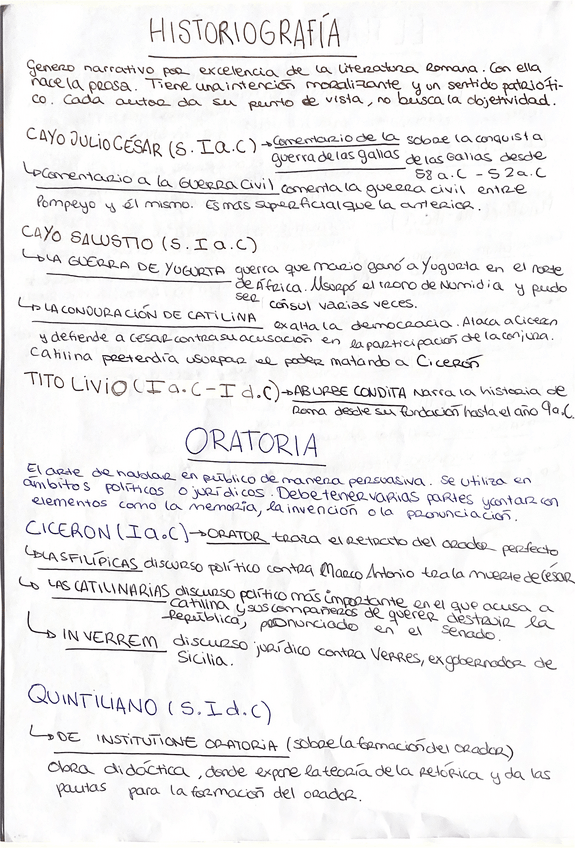 HISTORIOGRAFÍA
Genero narrativo por excelencia de la literatura Romana. Con ella
nace la prosa. Tiene una intención moralizante y un sentido patrioti-
co. Cada autor da su punto de vista, no busca la objetividad.
CAYO JULIO CÉSAR (S. I a.C) → Comentario de la sobre la conquista
guerra de las galias de las Galias desde
58 a.C - 52 a.C
↳ Comentario a la Guerra Civil comenta la guerra civil entre
Pompeyo y él mismo. Es mas superficial que la anterior.
CAYO SALUSTIO (S. I a.C)
↳ LA GUERRA DE YUGURTA guerra que mario ganó a Yugurta en el norte
de África. Usurpó el trono de Numidia y pudo
ser cónsul varias veces.
↳ LA CONJURACIÓN DE CATILINA exalta la democracia. Ataca a Ciceron
y defiende a Cesar contra su acusación en la participación de la conjura.
Catilina pretendia usurpar el poder matando a Cicerón
TITO LIVIO (I a.C - I d.C) → AB URBE CONDITA Narra la historia de
Roma desde su fundación hasta el año 9 a.C.
ORATORIA
El arte de hablar en público de manera persuasiva. Se utiliza en
ámbitos políticos o jurídicos. Debe tener varias partes y contar con
elementos como la memoria, la invención o la pronunciación.
CICERON (I a.C) → ORATOR traza el retrato del orador perfecto
↳ LAS FILÍPICAS discurso político contra Marco Antonio tra la muerte de César
↳ LAS CATILINARIAS discurso político más importante en el que acusa a
Catilina y sus compañeros de querer destruir la
República, pronunciado en el senado.
↳ IN VERREM discurso jurídico contra Verres, exgobernador de
Sicilia.
QUINTILIANO (S. I d.C)
↳ DE INSTITUTIONE ORATORIA (sobre la formación del orador)
Obra didáctica, donde expone la teoría de la retórica y da las
pautas para la formación del orador.